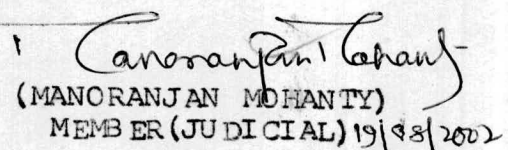 Manoranjan Mohanty
(MANORANJAN MOHANTY)
MEMBER(JUDICIAL) 19/08/2002